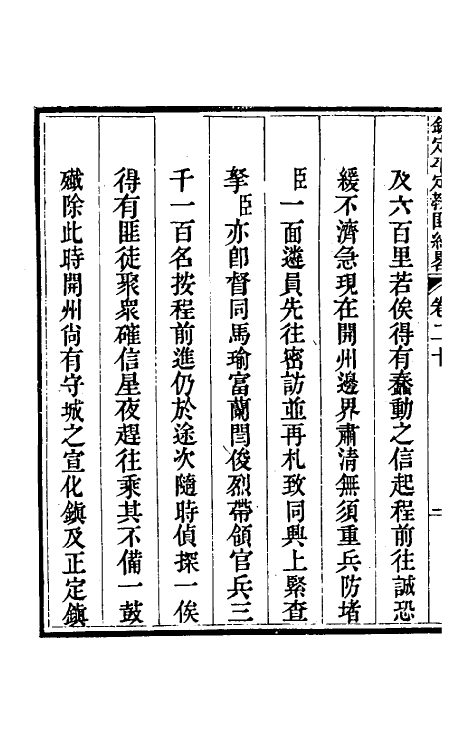 欽定平定教匪紀畧 卷二十 二
及六百里若俟得有蠢動之信起程前往誠恐
緩不濟急現在開州邊界肅清無須重兵防堵
臣一面遴員先往密訪並再札致同興上緊查
拏臣亦卽督同馬瑜富蘭閆俊烈帶領官兵三
千一百名按程前進仍於途次隨時偵探一俟
得有匪徒聚衆確信星夜趕往乘其不備一鼓
殱除此時開州尙有守城之宣化鎮及正定鎮